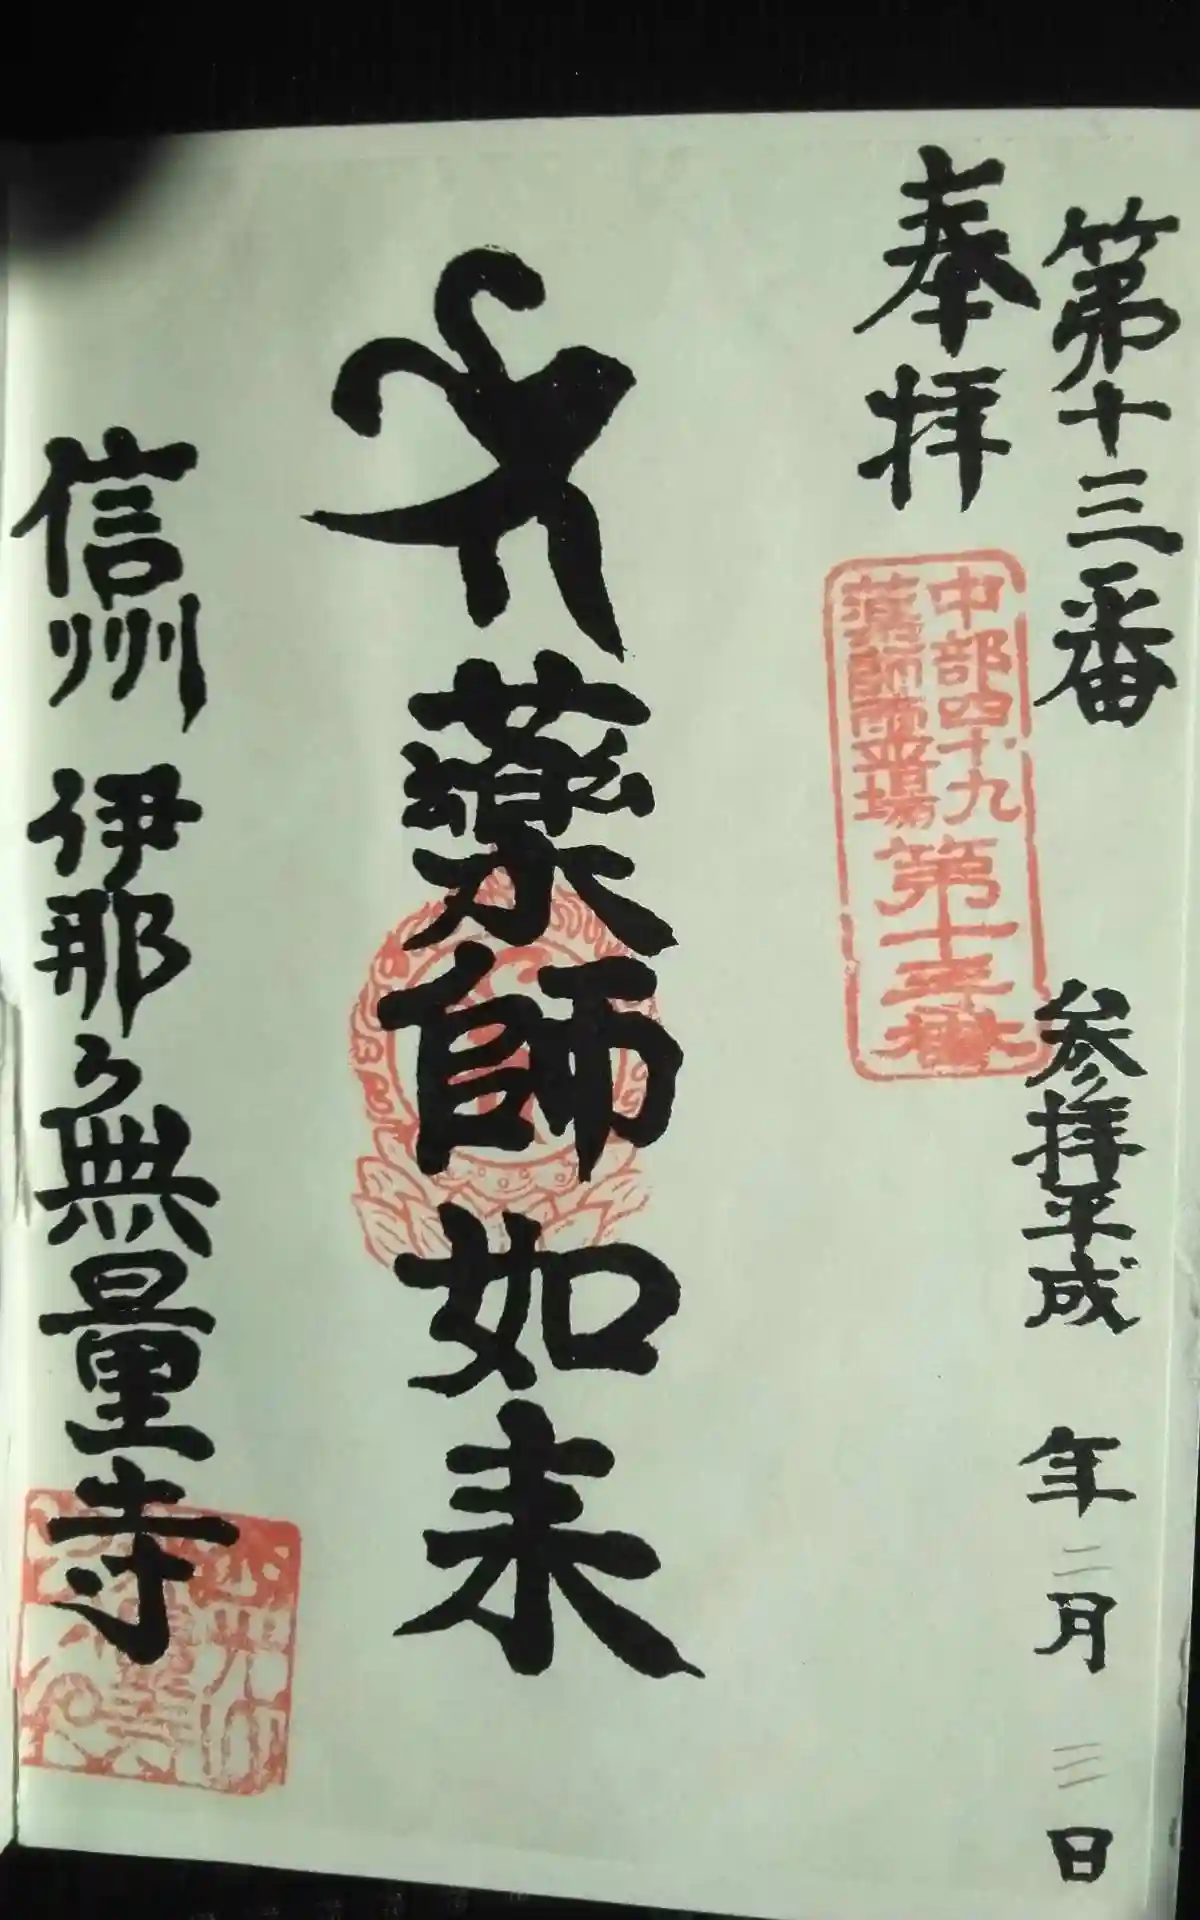 第十三番　参拝平成　年二月三日
奉拝
中部四十九
薬師霊場
第十三番
薬師如来
信州　伊那ヶ無量寺